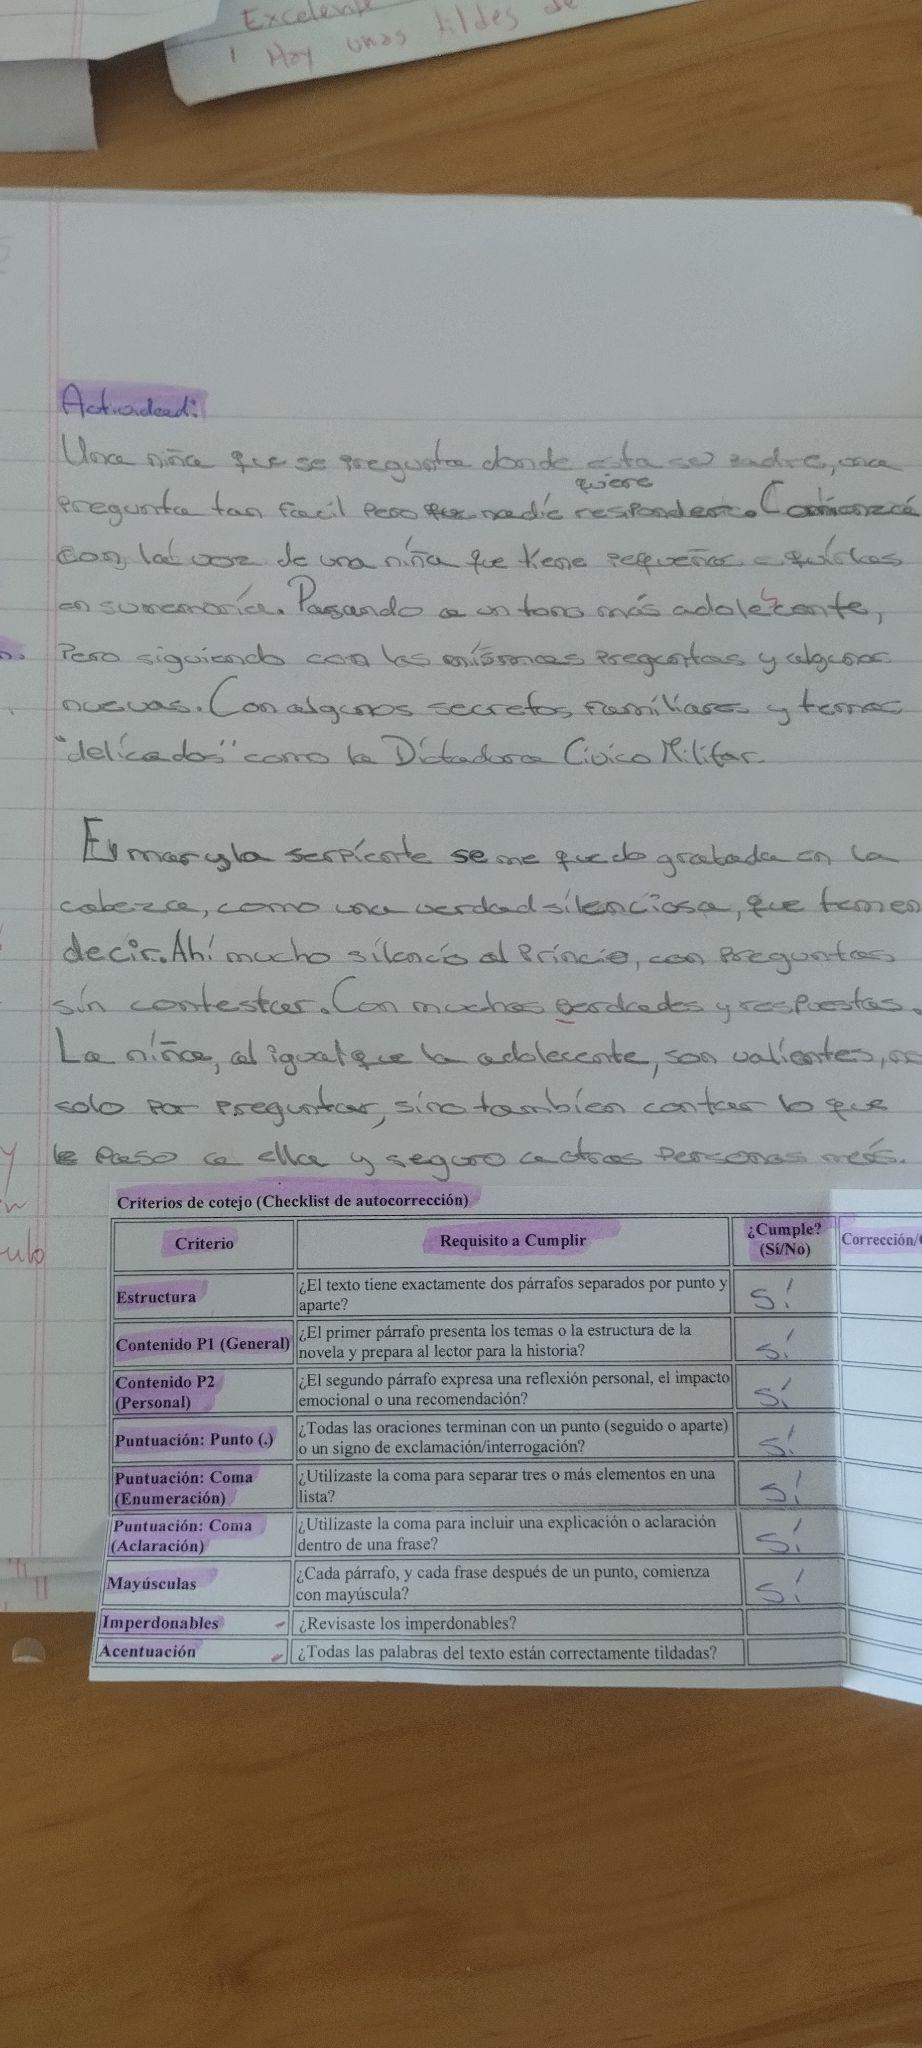 Excelente
! Hay unas tildes de
Actividad:
Una niña que se pregunta donde esta su padre, una
quiere
pregunta tan facil pero nadie responder. Comienza
con la voz de una niña que tiene pequeñas
en su memoria. Pasando a un tono más adolecente,
s
Pero siguiendo con las mismas preguntas y algunas
nuevas. Con algunos secretos familiares y temas
"delicados" como la Dictadura Cívico Militar.
El mar y la serpiente se me quedo grabada en la
cabeza, como una verdad silenciosa, que temen
decir. Ahí mucho silencio al Princio, con preguntas
sin contestar. Con muchas verdades y respuestas.
La niña, al igual que la adolecente, son valientes, no
solo por preguntar, sino también contar lo que
le paso a ella y seguro a otras personas más.
y
ulo
Criterios de cotejo (Checklist de autocorrección)
Criterio Requisito a Cumplir ¿Cumple? (Sí/No) Corrección/
Estructura ¿El texto tiene exactamente dos párrafos separados por punto y aparte? Sí
Contenido P1 (General) ¿El primer párrafo presenta los temas o la estructura de la novela y prepara al lector para la historia? Sí
Contenido P2 (Personal) ¿El segundo párrafo expresa una reflexión personal, el impacto emocional o una recomendación? Sí
Puntuación: Punto (.) ¿Todas las oraciones terminan con un punto (seguido o aparte) o un signo de exclamación/interrogación? Sí
Puntuación: Coma (Enumeración) ¿Utilizaste la coma para separar tres o más elementos en una lista? Sí
Puntuación: Coma (Aclaración) ¿Utilizaste la coma para incluir una explicación o aclaración dentro de una frase? Sí
Mayúsculas ¿Cada párrafo, y cada frase después de un punto, comienza con mayúscula? Sí
Imperdonables ¿Revisaste los imperdonables?
Acentuación ¿Todas las palabras del texto están correctamente tildadas?